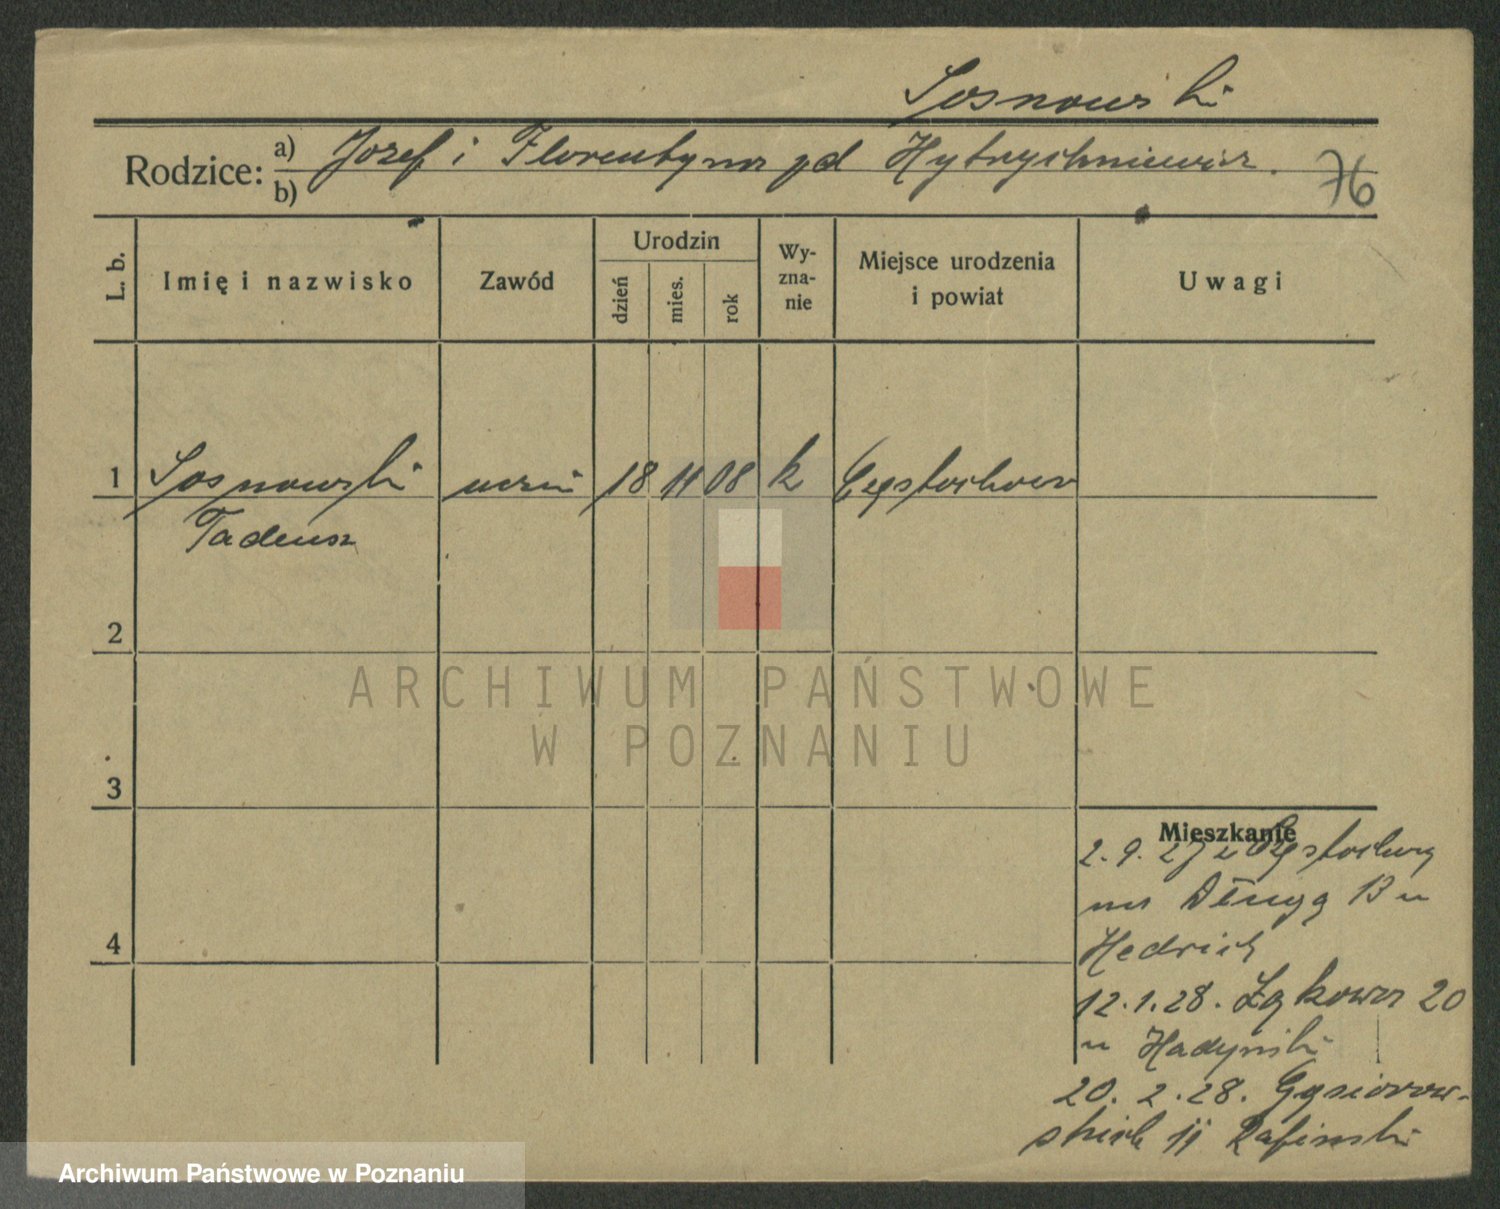 Sosnowski
Rodzice: a) Jozef i Florentyna yd Hytrychniewicz.
b)
76
L. b.
Imię i nazwisko
Zawód
Urodzin
dzień
mies.
rok
Wy-
zna-
nie
Miejsce urodzenia
i powiat
Uwagi
1 Sosnowski uczeń 18 11 08 k Częstochowa
Tadeusz
2
3
4
Mieszkanie
2.9.27 z Częstochowy
na Długą 13 u
Hedrich
12.1.28. Łąkowa 20
u Hadyński
20.2.28. Gąsiorow-
skich 11
ARCHIWUM PAŃSTWOWE
W POZNANIU
Archiwum Państwowe w Poznaniu